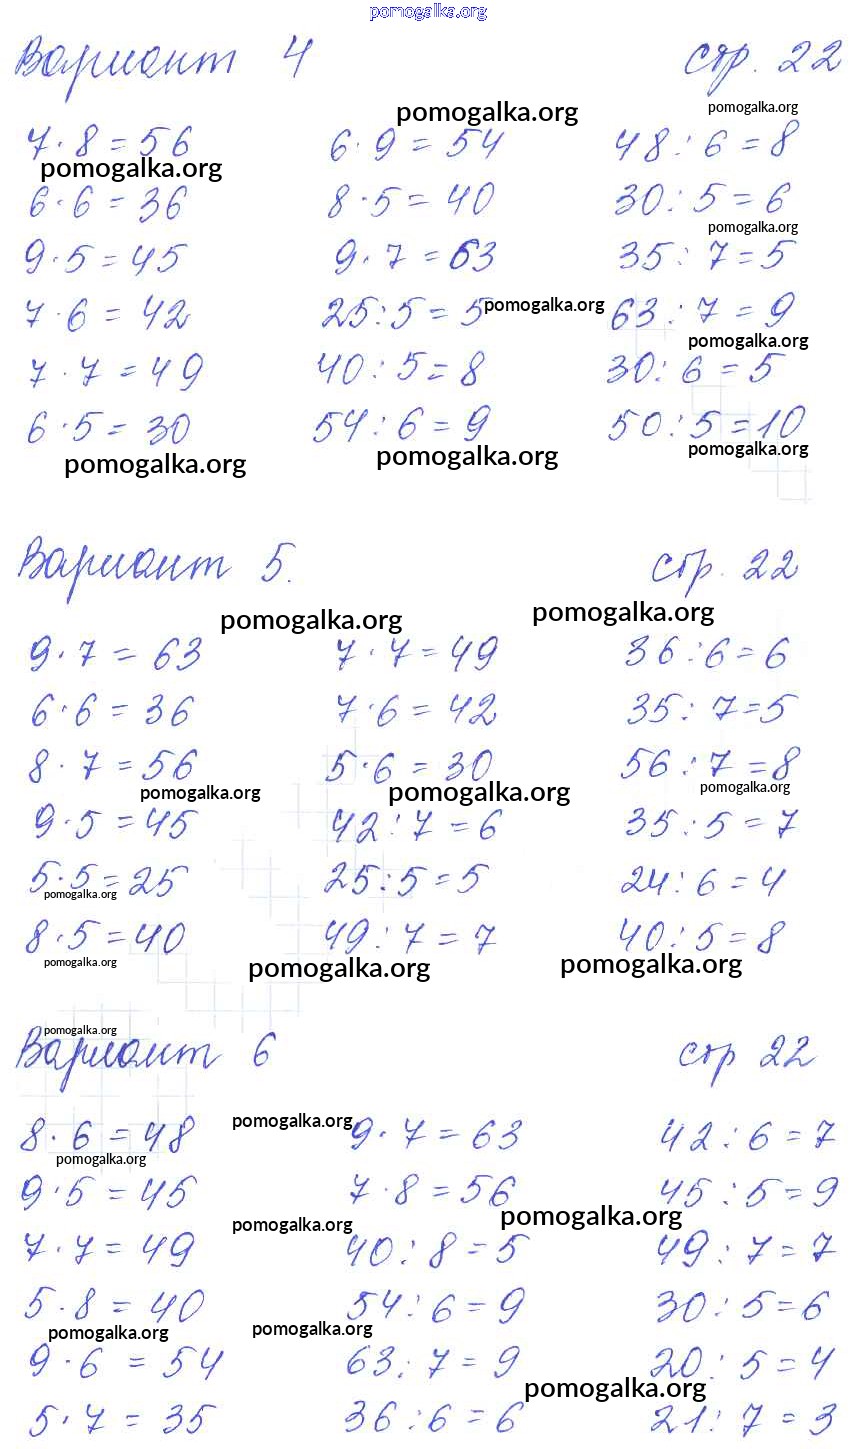 pomogalka.org
Вариант 4 стр. 22
pomogalka.org pomogalka.org
7·8=56 6·9=54 48:6=8
pomogalka.org
6·6=36 8·5=40 30:5=6
pomogalka.org
9·5=45 9·7=63 35:7=5
7·6=42 25:5=5 pomogalka.org 63:7=9
pomogalka.org
7·7=49 40:5=8 30:6=5
6·5=30 54:6=9 50:5=10
pomogalka.org pomogalka.org pomogalka.org
Вариант 5. стр. 22
pomogalka.org pomogalka.org
9·7=63 7·7=49 36:6=6
6·6=36 7·6=42 35:7=5
8·7=56 5·6=30 56:7=8
pomogalka.org pomogalka.org pomogalka.org
9·5=45 42:7=6 35:5=7
5·5=25 25:5=5 24:6=4
pomogalka.org
8·5=40 49:7=7 40:5=8
pomogalka.org pomogalka.org pomogalka.org
pomogalka.org
Вариант 6 стр 22
8·6=48 pomogalka.org 9·7=63 42:6=7
pomogalka.org
9·5=45 7·8=56 45:5=9
pomogalka.org pomogalka.org
7·7=49 40:8=5 49:7=7
5·8=40 54:6=9 30:5=6
pomogalka.org pomogalka.org
9·6=54 63:7=9 20:5=4
pomogalka.org
5·7=35 36:6=6 21:7=3